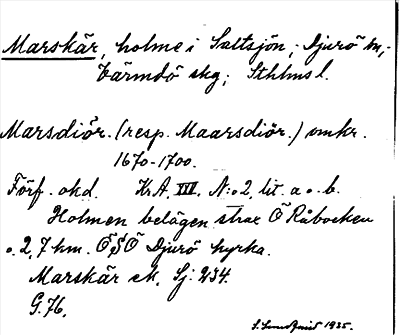 Marskär, holme i Saltsjön; Djurö sn,
Värmdö skg; Sthlms l.
Marsdiör. (resp. Maarsdiör.) omkr.
1670-1700.
Förf. okd. Kr.A. III. N:o 2. lit. a o. b.
Holmen belägen strax Ö Råbocken
o. 2,7 km. ÖSÖ Djurö kyrka.
Marskär ek. Sj: 234.
G. 76.
1935.